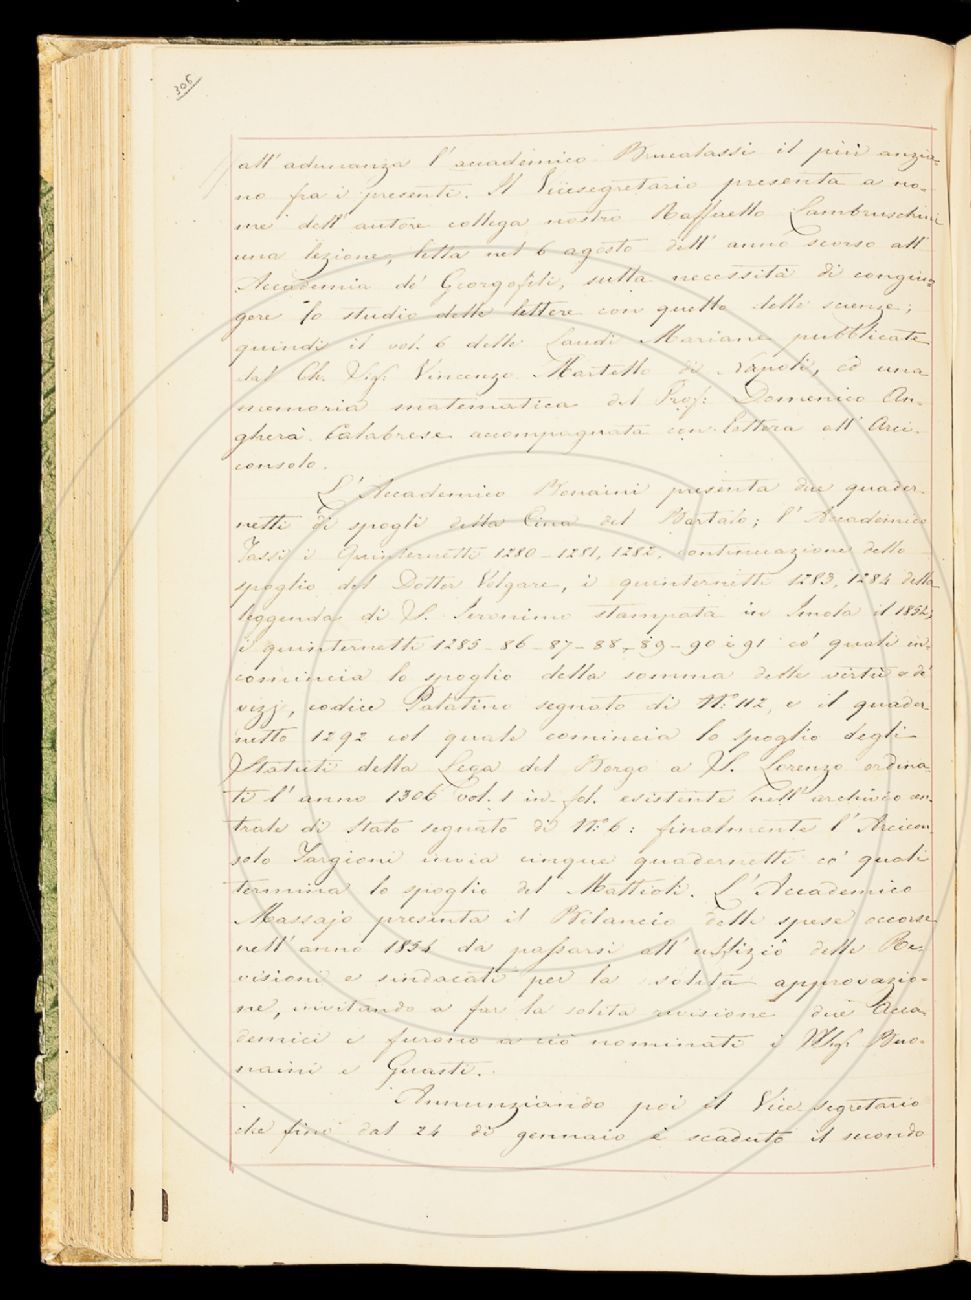 306
all' adunanza l' accademico Brucalassi il più anzia-
no fra i presenti. Il Vicesegretario presenta a no-
me dell' autore collega nostro Raffaello Lambruschini
una lezione, letta nel 6 agosto dell' anno scorso all'
Accademia de' Georgofili, sulla necessità di congiun-
gere lo studio delle lettere con quello delle scienze;
quindi il vol. 6 delle Laudi Mariane pubblicate
dal Ch. Sig. Vincenzo Martello di Napoli, ed una
memoria matematica del Prof. Domenico An-
gherà Calabrese accompagnata con lettera all' Arci-
consolo.
L' Accademico Bonaini presenta due quader-
netti di spogli della Cina del Bartoli; l' Accademico
Tassi i Quinternetti 1280 - 1281, 1282, continuazione dello
spoglio del Dotta Volgare, i quinternetti 1283, 1284 della
leggenda di S. Jeronimo stampata in Imola il 1852;
i quinternetti 1285 - 86 - 87 - 88 - 89 - 90 e 91 co' quali in-
comincia lo spoglio della somma delle virtù e de'
vizj, codice Palatino segnato di N.° 112, e il quader-
netto 1292 col quale comincia lo spoglio degli
Statuti della Lega del Borgo a S. Lorenzo ordina-
ti l' anno 1306 vol. 1 in fol. esistente nell' archivio cen-
trale di Stato segnato di N.° 6: finalmente l' Arcicon-
solo Targioni invia cinque quadernetti co' quali
termina lo spoglio del Mattioli. L' Accademico
Massajo presenta il Bilancio delle spese occorse
nell' anno 1854 da passarsi all' uffizio delle Re-
visioni e sindacati per la solita approvazio-
ne, invitando a far la solita revisione due Acca-
demici e furono a ciò nominati i Sigg. Buo-
naini e Guasti.
Annunziando poi il Vice segretario
che fino dal 24 di gennaio è scaduto il secondo